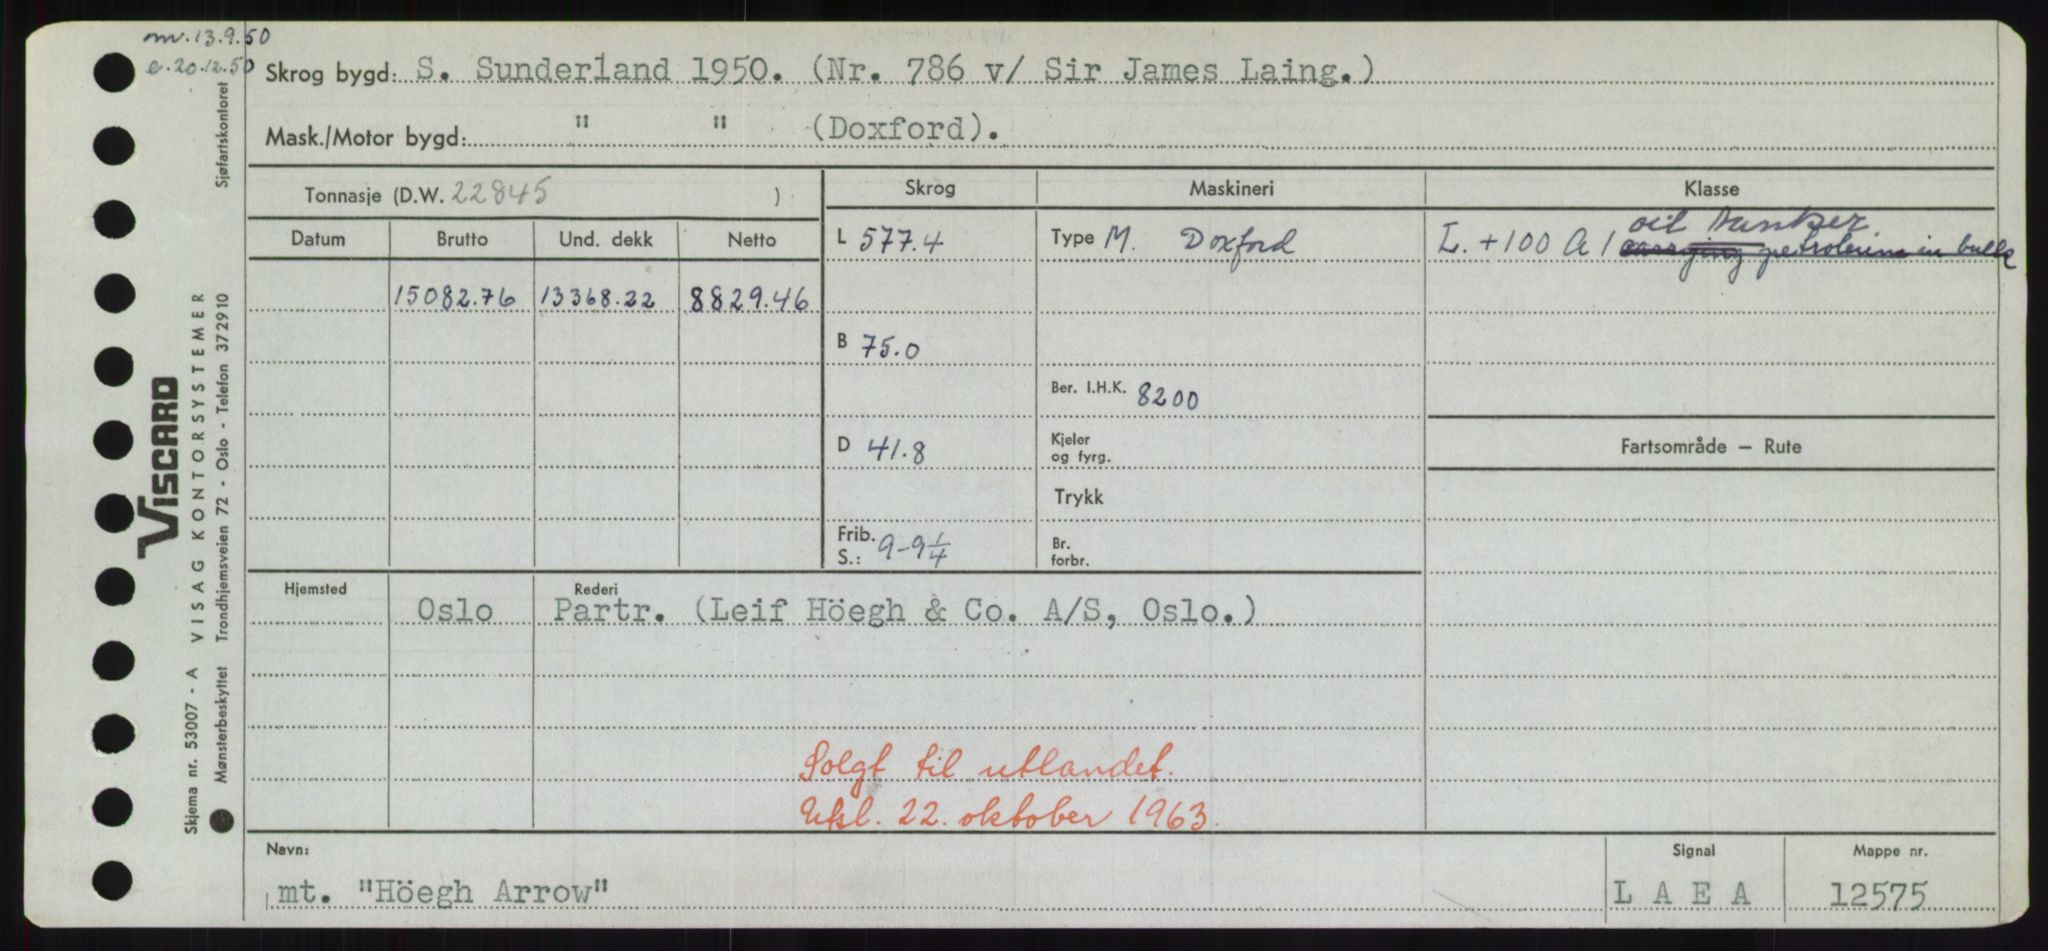 mv. 13.9.50
e. 20.12.50
Skrog bygd: S. Sunderland 1950. (Nr. 786 v/ Sir James Laing.)
Mask./Motor bygd: " " (Doxford).
Tonnasje (D.W. 22845 )
Skrog
Maskineri
Klasse
Datum Brutto Und. dekk Netto
15082.76 13368.22 8829.46
L 577.4
B 75.0
D 41.8
Frib. S.: 9-9 1/4
Type M. Doxford
Ber. I.H.K. 8200
Kjeler
og fyrg.
Trykk
Br.
forbr.
oil tanker
L. +100 A 1 carrying petroleum in bulk
Fartsområde — Rute
Hjemsted Rederi
Oslo Partr. (Leif Höegh & Co. A/S, Oslo.)
Solgt til utlandet.
Utsl. 22. oktober 1963.
Navn: Signal Mappe nr.
mt. "Höegh Arrow" L A E A 12575
VISCARD
Skjema nr. 53007 - A VISAG KONTORSYSTEMER
Mønsterbeskyttet Trondhjemsveien 72 - Oslo - Telefon 372910 Sjøfartskontoret